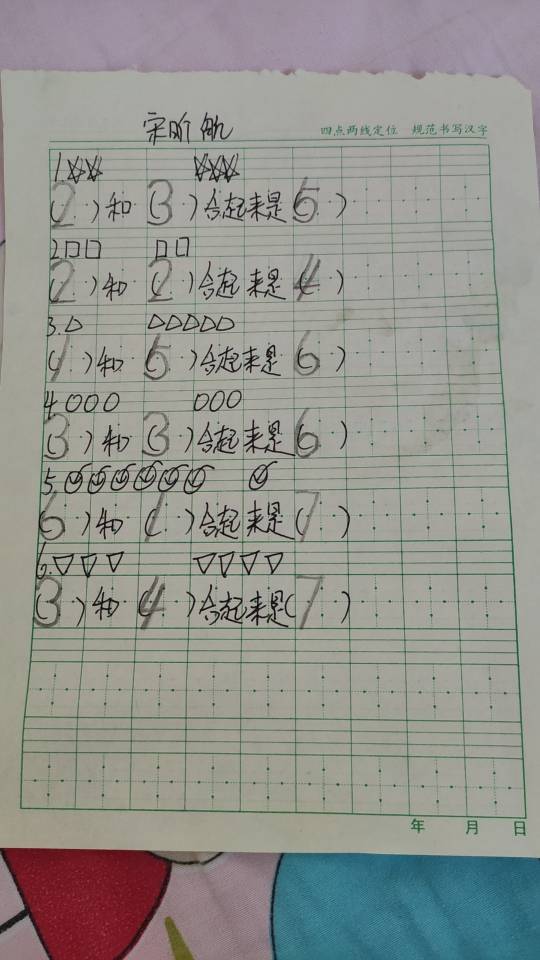 宋昕航
四点两线定位 规范书写汉字
1.☆☆ ☆☆☆
(2)和(3)合起来是(5)
2.□□ □□
(2)和(2)合起来是(4)
3.△ △△△△△
(1)和(5)合起来是(6)
4.○○○ ○○○
(3)和(3)合起来是(6)
5.
(6)和(1)合起来是(7)
6.▽▽▽ ▽▽▽▽
(3)和(4)合起来是(7)
年 月 日